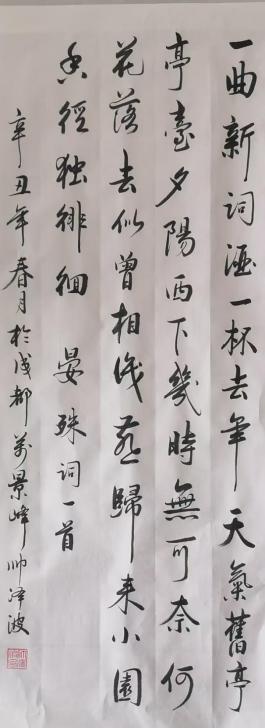 一曲新词酒一杯去年天氣舊亭
亭臺夕陽西下幾時無可奈何
花落去似曾相識燕歸来小園
香徑独徘徊 晏殊词一首
辛丑年春月於成都萬景峰帅泽波